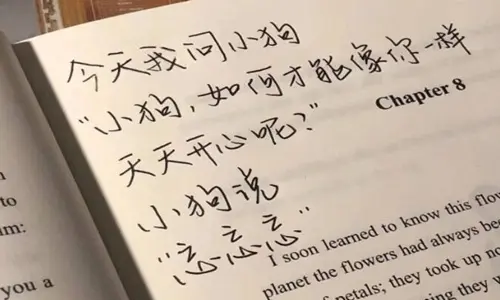 to
you a
今天我问小狗
“小狗，如何才能像你一样
天天开心呢？”
小狗说
“忘忘忘”
Chapter 8
I soon learned to know this flow
planet the flowers had always be
of petals; they took up no
they